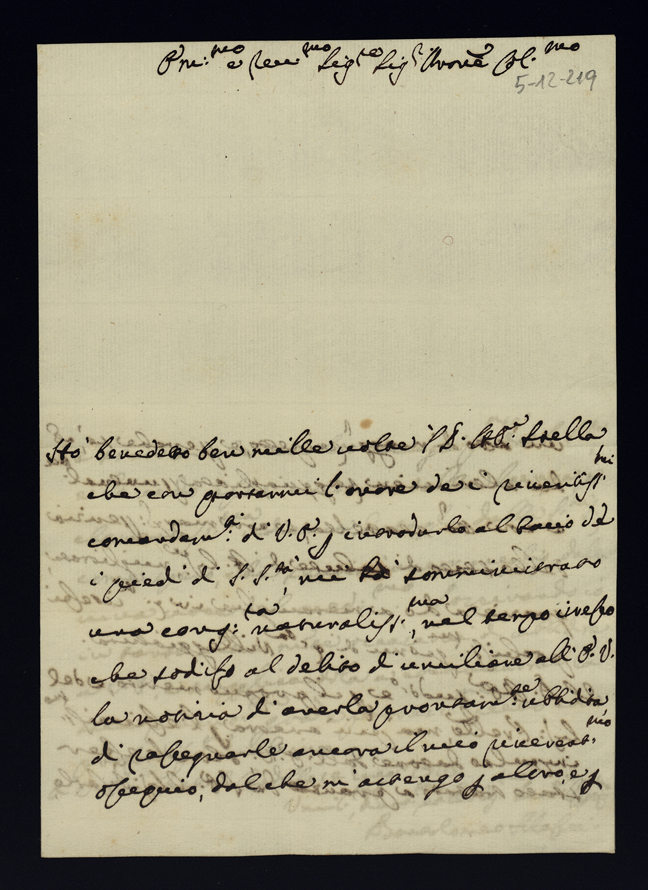 P'ne: mo e Rev mo Sig re Sig r Prone Col. mo
5-12-219
Hò benedetto ben mille volte il P. Stella
che con portarmi l'onore de i riveritiss: mi
comandam: ti di V. P. p introdurlo al bacio de
i piedi di S. S. tà, mi hà somministrato
una cong: ra naturaliss: ma, nel tempo istesso
che sodisfo al debito di umiliare all' P. V.
la notizia d'averla prontam: te ubbidita
di rassegnarle ancora il mio riverent: mo
ossequio, dal che m'astengo p altro, e p